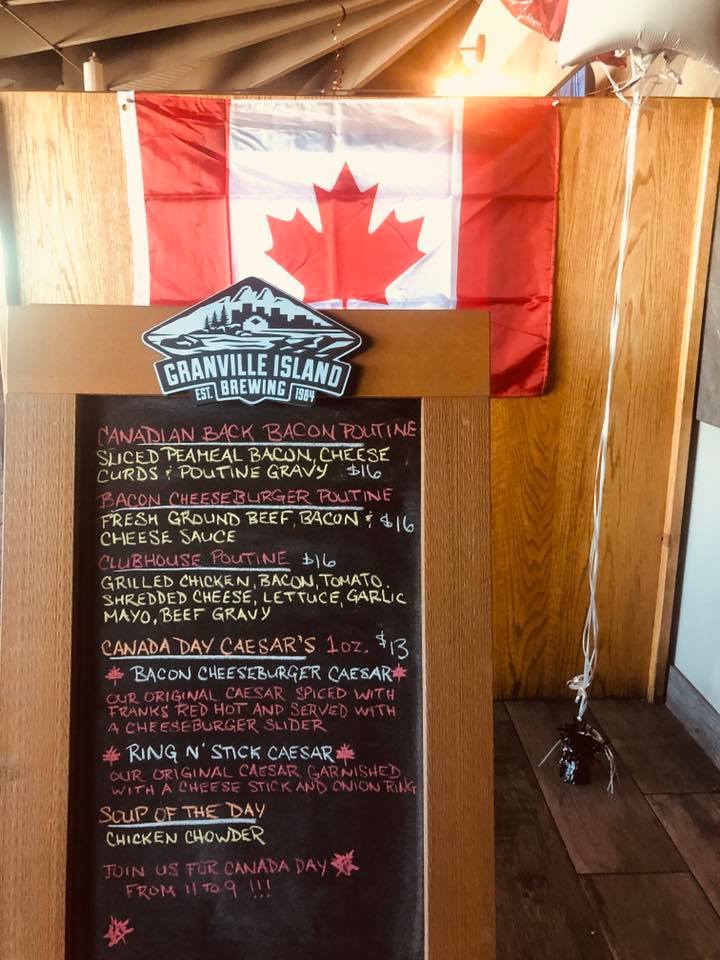 GRANVILLE ISLAND
EST. BREWING 1984
CANADIAN BACK BACON POUTINE
SLICED PEAMEAL BACON, CHEESE
CURDS & POUTINE GRAVY $16
BACON CHEESEBURGER POUTINE
FRESH GROUND BEEF, BACON & $16
CHEESE SAUCE
CLUBHOUSE POUTINE $16
GRILLED CHICKEN, BACON, TOMATO,
SHREDDED CHEESE, LETTUCE, GARLIC
MAYO, BEEF GRAVY
CANADA DAY CAESAR'S 1oz. $13
BACON CHEESEBURGER CAESAR
OUR ORIGINAL CAESAR SPICED WITH
FRANKS RED HOT AND SERVED WITH
A CHEESEBURGER SLIDER
RING N' STICK CAESAR
OUR ORIGINAL CAESAR GARNISHED
WITH A CHEESE STICK AND ONION RING
SOUP OF THE DAY
CHICKEN CHOWDER
JOIN US FOR CANADA DAY
FROM 11 TO 9 !!!